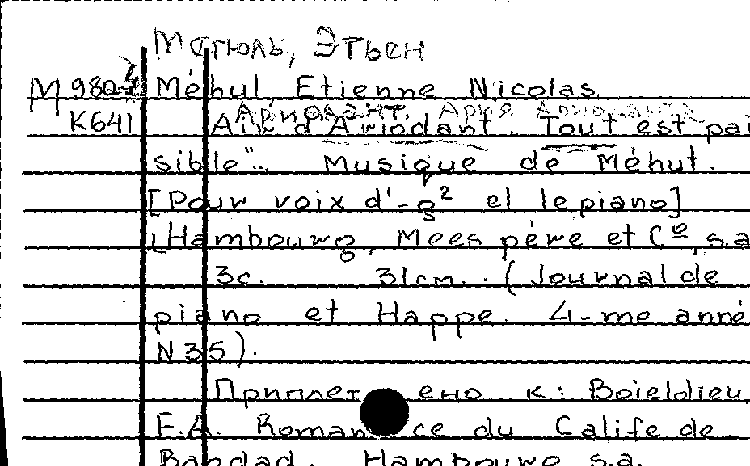 Мегюль, Этьен
М 980-4 Méhul, Etienne Nicolas
Ариодант. Ария
К641 Air d'Ariodant "Tout est pai
sible".. Musique de Méhul.
[Pour voix d'-g² et le piano]
[Hambourg, Mees père et Cº, s.a
3с. 31cm. (Journal de
piano et Нарре. 4-me anné
N 35).
Приплетено к: Boieldieu
F.A. Romance du Calife de
Bagdad. Hambourg s.a.